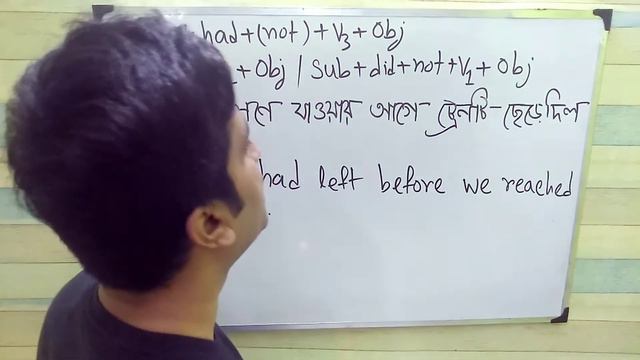 had+(not)+V3+Obj
+Obj / Sub+did+not+V1+Obj
যাওয়ার আগে ট্রেনটি ছেড়ে দিল
had left before we reached